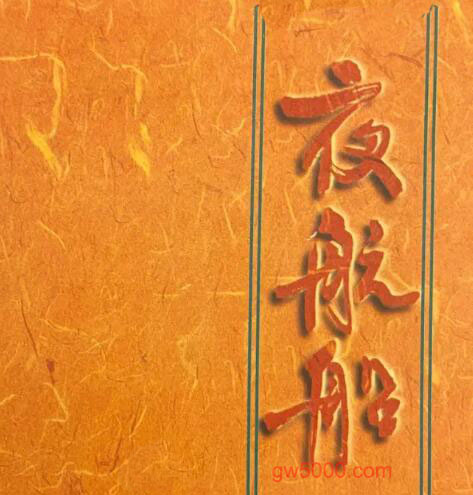 夜航船
gw5000.com